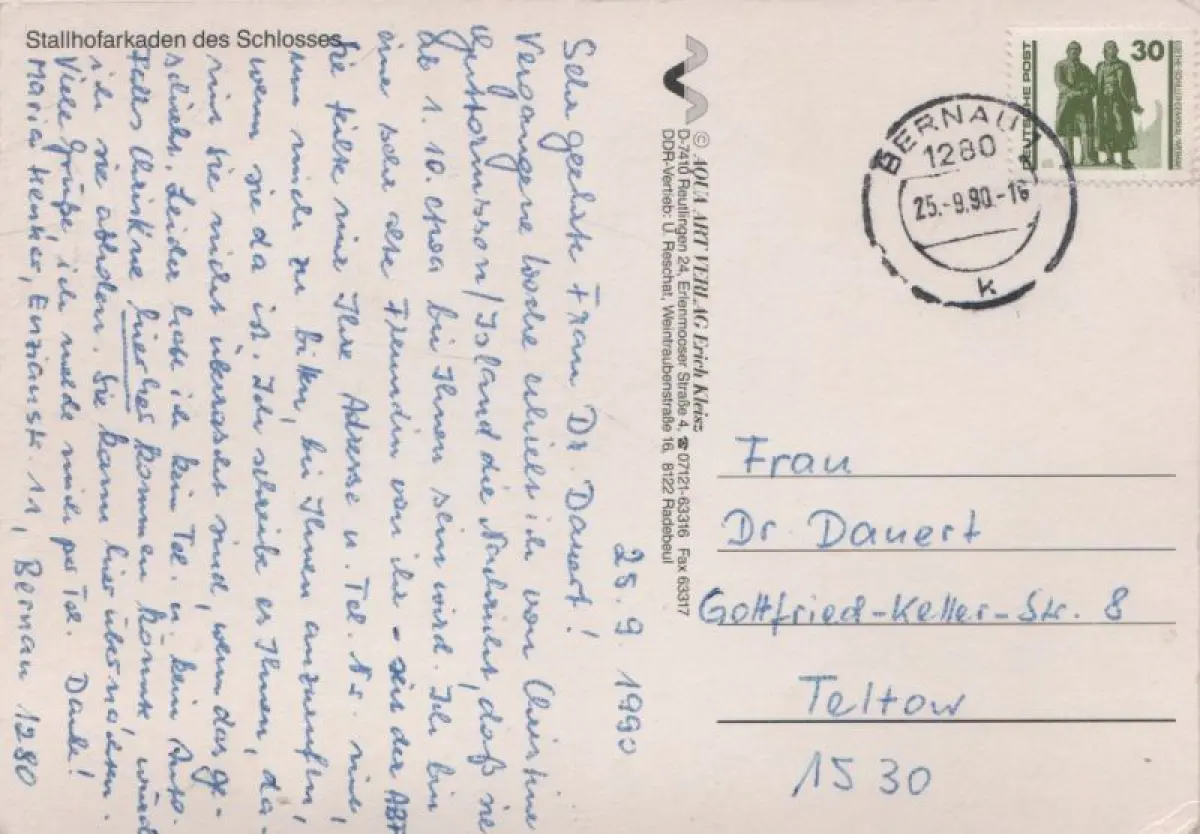 Stallhofarkaden des Schlosses
25. 9. 1990
Sehr geehrte Frau Dr. Dauert!
Vergangene Woche erhielt ich von Christine
Guttormsson/Island die Nachricht, daß sie
ab 1. 10. etwa bei Ihnen sein wird. Ich bin
eine sehr alte Freundin von ihr - seit der ABF
Sie teilte mir Ihre Adresse u. Tel. Nr. mit,
um mich zu bitten, bei Ihnen anzurufen,
wenn sie da ist. Ich schreibe es Ihnen, da-
mit Sie nicht überrascht sind, wenn das ge-
schieht. Leider habe ich kein Tel. u. kein Auto.
Falls Christine hierher kommen könnte, würde
ich sie abholen. Sie kann hier übernachten.
Viele Grüße, ich melde mich per Tel. Danke!
Maria Henker, Enzianstr. 11, Bernau 1280
© AQUA ART VERLAG Erich Kleisz
D-7410 Reutlingen 24, Erlenmooser Straße 4, ☎ 07121-63316 Fax 63317
DDR-Vertrieb: U. Reschat, Weintraubenstraße 16, 8122 Radebeul
BERNAU
1280
25.-9.90.-16
k
30
DEUTSCHE POST
Frau
Dr Dauert
Gottfried-Keller-Str. 8
Teltow
1530